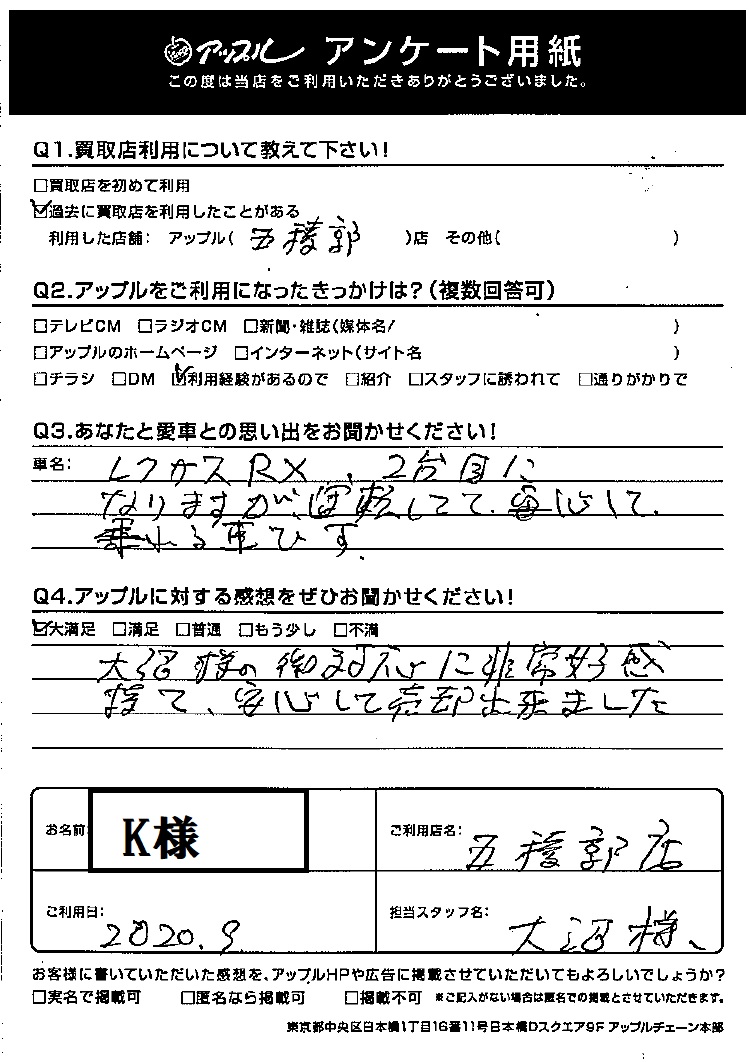 アップル アンケート用紙
この度は当店をご利用いただきありがとうございました。
Q1.買取店利用について教えて下さい!
□買取店を初めて利用
☑過去に買取店を利用したことがある
利用した店舗: アップル(五稜郭)店 その他( )
Q2.アップルをご利用になったきっかけは?(複数回答可)
□テレビCM □ラジオCM □新聞・雑誌(媒体名/ )
□アップルのホームページ □インターネット(サイト名 )
□チラシ □DM ☑利用経験があるので □紹介 □スタッフに誘われて □通りがかりで
Q3.あなたと愛車との思い出をお聞かせください!
車名: レクサスRX、2台目に
なりますが、運転してて、安心して
乗れる車です。
Q4.アップルに対する感想をぜひお聞かせください!
☑大満足 □満足 □普通 □もう少し □不満
大沼様の御対応に非常好感
持て、安心して売却出来ました
お名前: K様
ご利用店名: 五稜郭店
ご利用日: 2020.9
担当スタッフ名: 大沼様、
お客様に書いていただいた感想を、アップルHPや広告に掲載させていただいてもよろしいでしょうか?
□実名で掲載可 □匿名なら掲載可 □掲載不可 ※ご記入がない場合は匿名での掲載とさせていただきます。
東京都中央区日本橋1丁目16番11号日本橋Dスクエア9F アップルチェーン本部